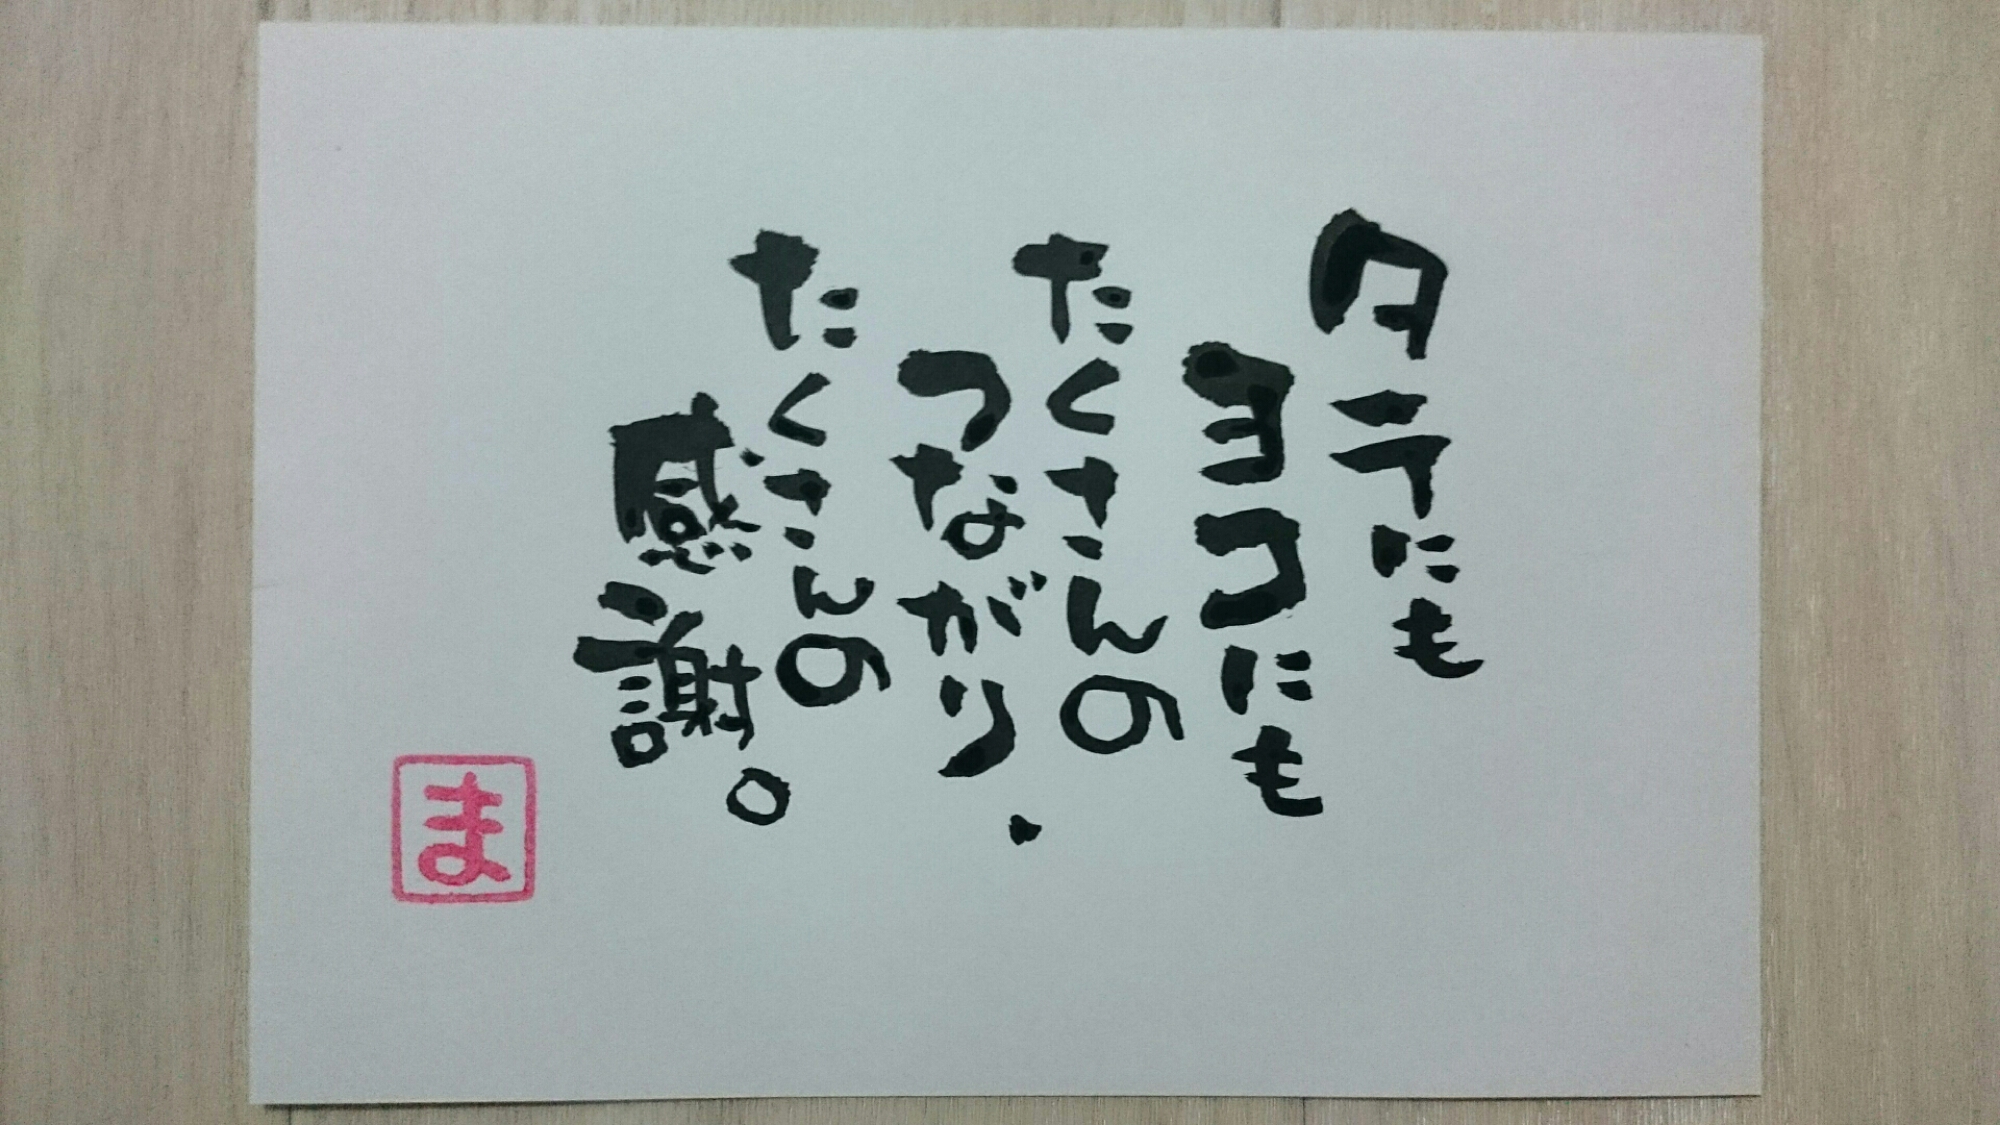 タテにも
ヨコにも
たくさんの
つながり.
たくさんの
感謝。
ま